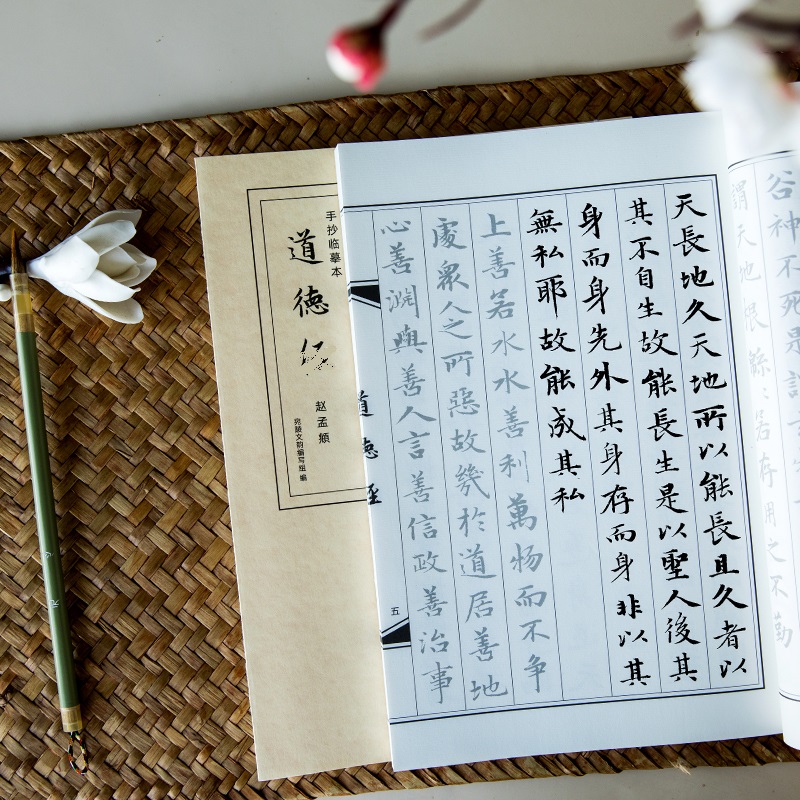 谷神不死是謂
謂天地根綿〻若存用之不勤
天長地久天地所以能長且久者以
其不自生故能長生是以聖人後其
身而身先外其身存而身非以其
無私耶故能成其私
上善若水水善利萬物而不争
處衆人之所惡故幾於道居善地
心善淵與善人言善信政善治事
道德經
五
手抄临摹本
道德经
赵孟頫
宛陵文韵编写组 编